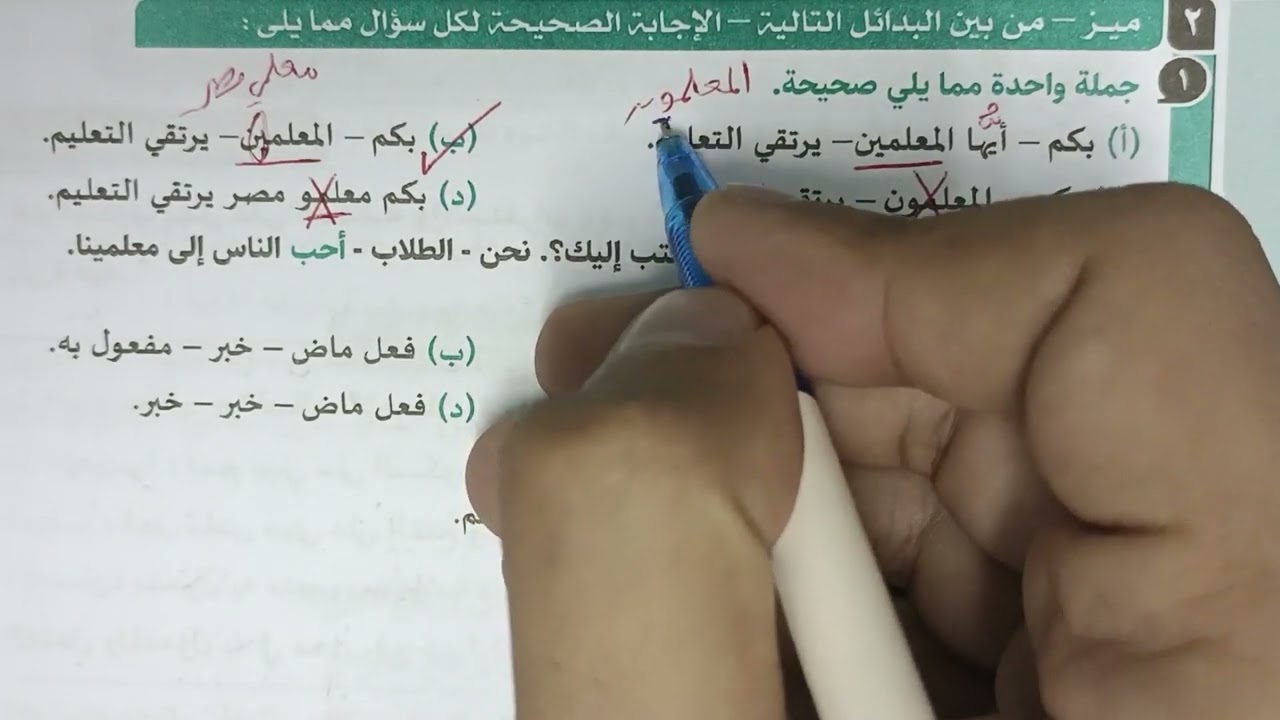 ٢ ميز – من بين البدائل التالية – الإجابة الصحيحة لكل سؤال مما يلي :
١ جملة واحدة مما يلي صحيحة.
المعلمون
معلمي مصر
(أ) بكم – أيها المعلمين – يرتقي
(ب) بكم – المعلمين – يرتقي التعليم.
المعلمون –
(د) بكم معلمو مصر يرتقي التعليم.
إليك؟. نحن - الطلاب - أحب الناس إلى معلمينا.
(ب) فعل ماض – خبر – مفعول به.
(د) فعل ماض – خبر – خبر.